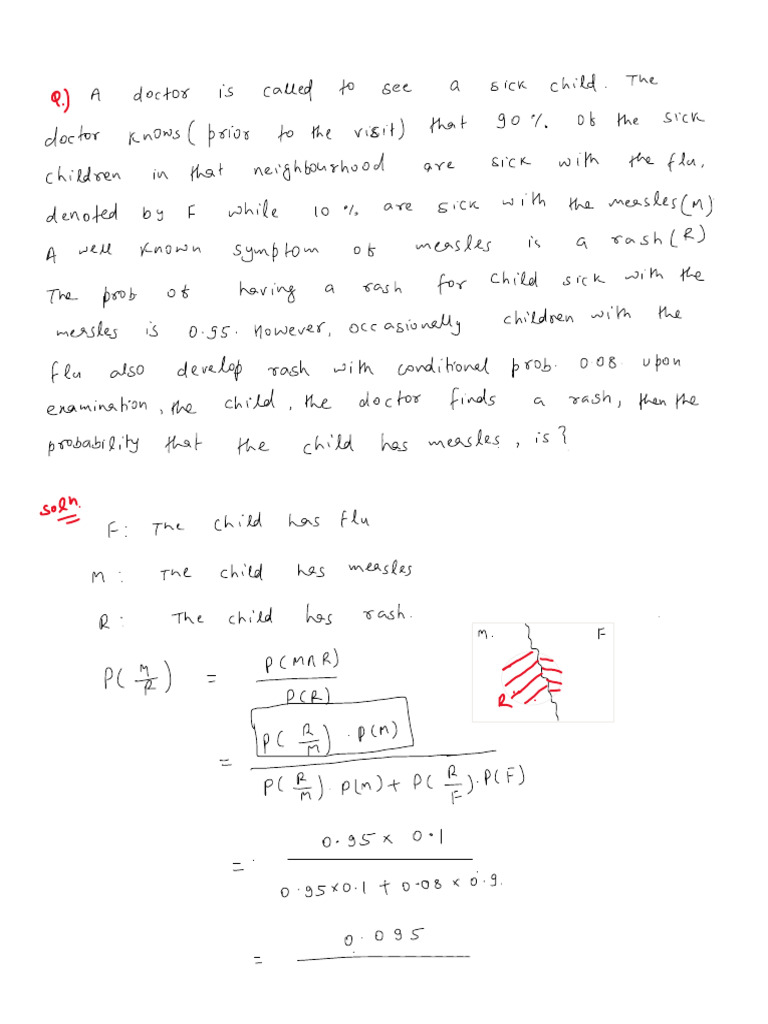 Q.) A doctor is called to see a sick child. The
doctor knows (prior to the visit) that 90 %. of the sick
children in that neighbourhood are sick with the flu,
denoted by F while 10 % are sick with the measles (M)
A well known symptom of measles is a rash (R)
The prob of having a rash for child sick with the
measles is 0.95. However, occasionally children with the
flu also develop rash with conditional prob. 0 08. upon
examination, the child, the doctor finds a rash, then the
probability that the child has measles, is?
soln.
F: The child has flu
M: The child has measles
R: The child has rash.
M. F
R
P(M/R) = P(M∩R) / P(R)
= P(R/M) · P(M) / P(R/M) · P(M) + P(R/F) · P(F)
= 0.95 x 0.1 / 0.95 x 0.1 + 0.08 x 0.9.
= 0.095